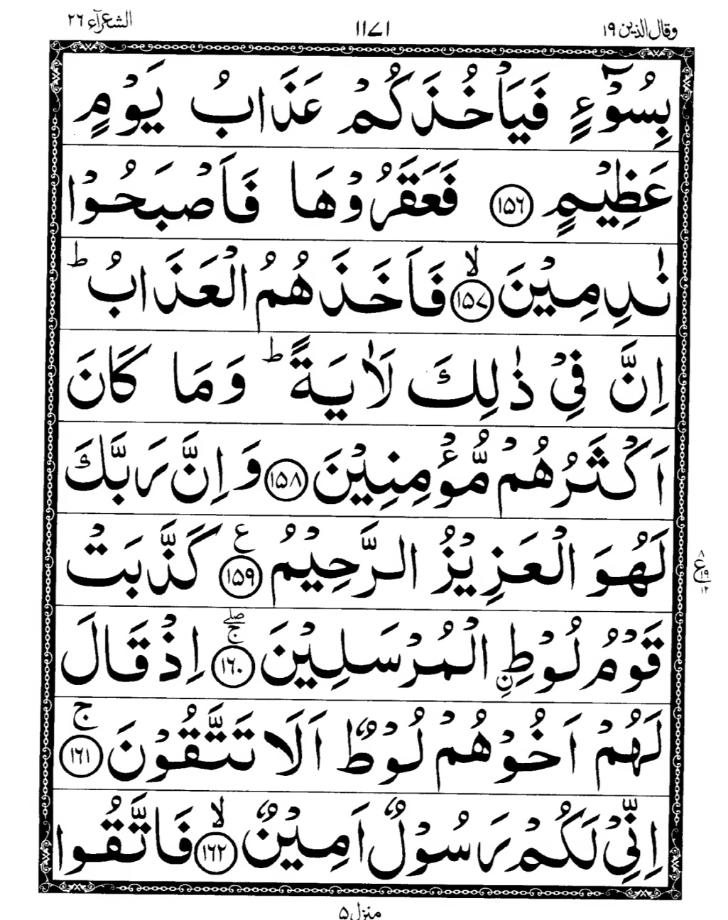 وقال الذين ١٩ ١١٧١ الشعرآء ٢٦
بِسُوْٓءٍ فَيَاْخُذَكُمْ عَذَابُ يَوْمٍ
عَظِيْمٍ ﴿١٥٦﴾ فَعَقَرُوْهَا فَاَصْبَحُوْا
نٰدِمِيْنَ ۙ﴿١٥٧﴾ فَاَخَذَهُمُ الْعَذَابُ ؕ
اِنَّ فِيْ ذٰلِكَ لَاٰيَةً ؕ وَمَا كَانَ
اَكْثَرُهُمْ مُّؤْمِنِيْنَ ﴿١٥٨﴾ وَاِنَّ رَبَّكَ
لَهُوَ الْعَزِيْزُ الرَّحِيْمُ ﴿١٥٩﴾ ع كَذَّبَتْ
٨ ع ١٩ ١٢
قَوْمُ لُوْطِ ۨ الْمُرْسَلِيْنَ ۖۚ﴿١٦٠﴾ اِذْ قَالَ
لَهُمْ اَخُوْهُمْ لُوْطٌ اَلَا تَتَّقُوْنَ ۚ﴿١٦١﴾
اِنِّيْ لَكُمْ رَسُوْلٌ اَمِيْنٌ ۙ﴿١٦٢﴾ فَاتَّقُوا
منزل ٥